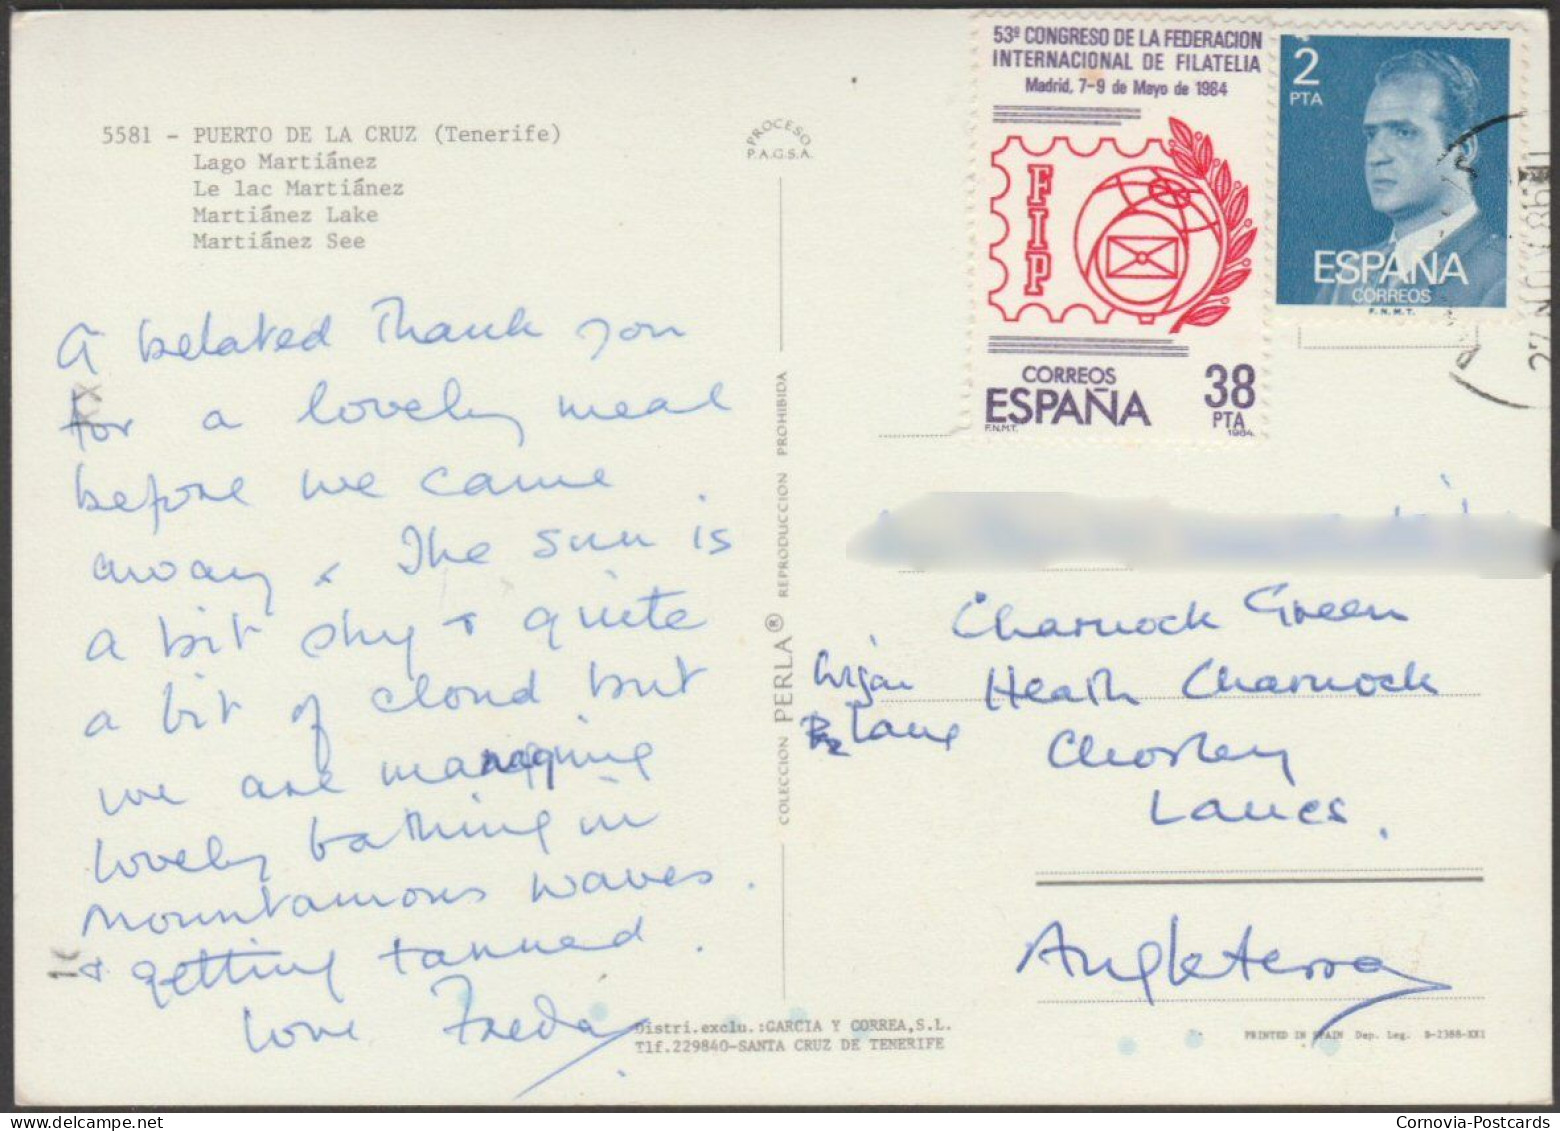 5581 - PUERTO DE LA CRUZ (Tenerife)
Lago Martiánez
Le lac Martiánez
Martiánez Lake
Martiánez See
PROCESO
P.A.G.S.A.
A belated Thank you
for a lovely meal
before we came
away. The sun is
a bit shy & quite
a bit of cloud but
we are managing
lovely bathing in
mountainous waves.
& getting tanned.
love Freda
COLECCION PERLA® REPRODUCCION PROHIBIDA
Distri.exclu.:GARCIA Y CORREA,S.L.
Tlf.229840-SANTA CRUZ DE TENERIFE
53º CONGRESO DE LA FEDERACION
INTERNACIONAL DE FILATELIA
Madrid, 7-9 de Mayo de 1984
FIP
CORREOS
ESPAÑA
38
PTA
F.N.M.T.
1984
2
PTA
ESPAÑA
CORREOS
F.N.M.T.
27 NOV 86
Charnock Green
Lane Heath Charnock
Chorley
Lancs.
Angleterra
PRINTED IN SPAIN Dep. Leg. B-2388-XXI
Cornovia-Postcards